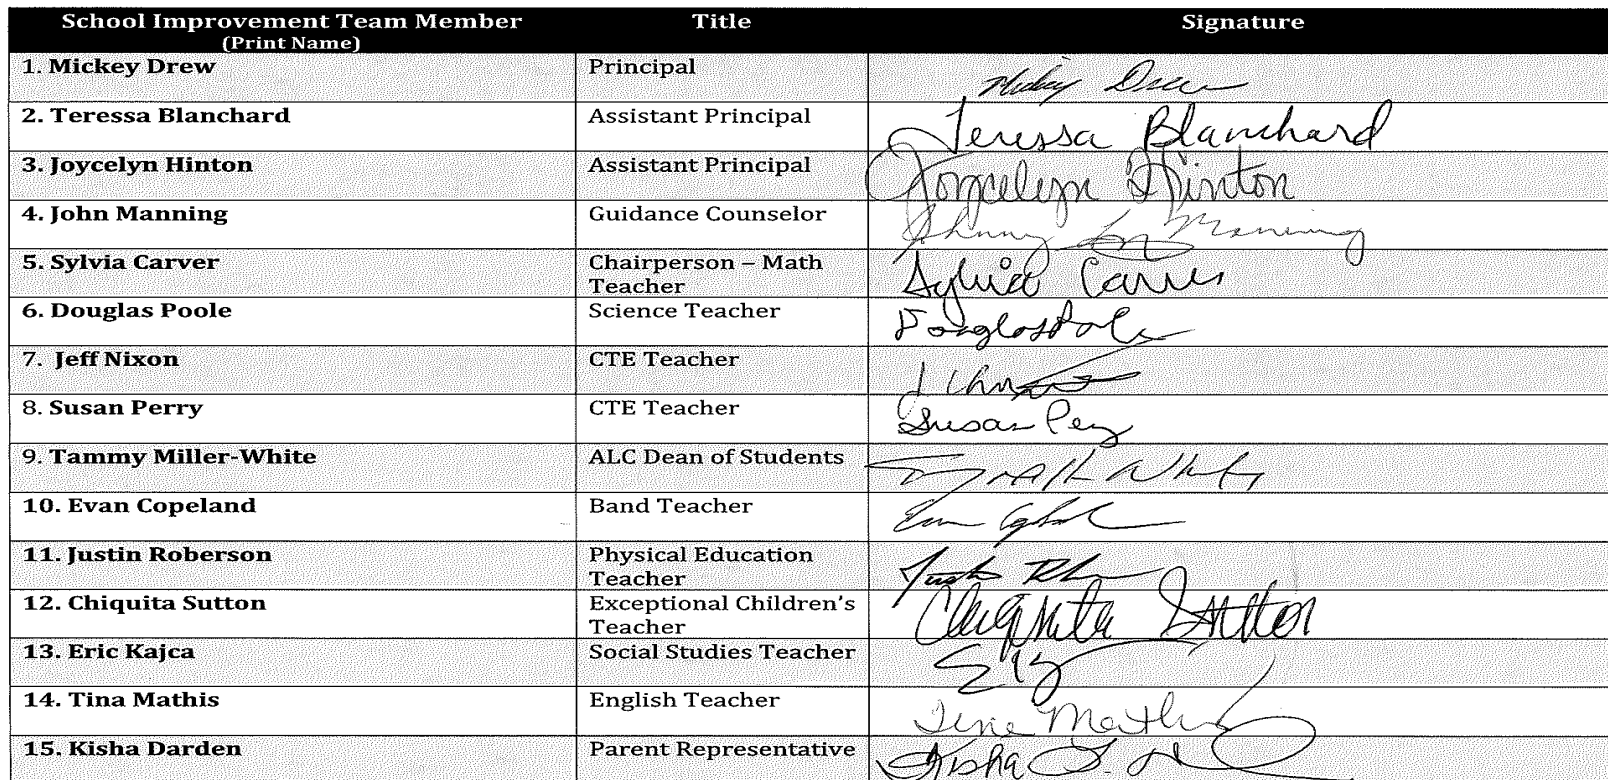 School Improvement Team Member Title Signature
(Print Name)
1. Mickey Drew Principal Mickey Drew
2. Teressa Blanchard Assistant Principal Teressa Blanchard
3. Joycelyn Hinton Assistant Principal Joycelyn Hinton
4. John Manning Guidance Counselor Manning
5. Sylvia Carver Chairperson – Math Sylvia Carver
Teacher
6. Douglas Poole Science Teacher Douglas Poole
7. Jeff Nixon CTE Teacher
8. Susan Perry CTE Teacher Susan Perry
9. Tammy Miller-White ALC Dean of Students
10. Evan Copeland Band Teacher
11. Justin Roberson Physical Education Justin
Teacher
12. Chiquita Sutton Exceptional Children's Chiquita Sutton
Teacher
13. Eric Kajca Social Studies Teacher
14. Tina Mathis English Teacher Tina Mathis
15. Kisha Darden Parent Representative Kisha